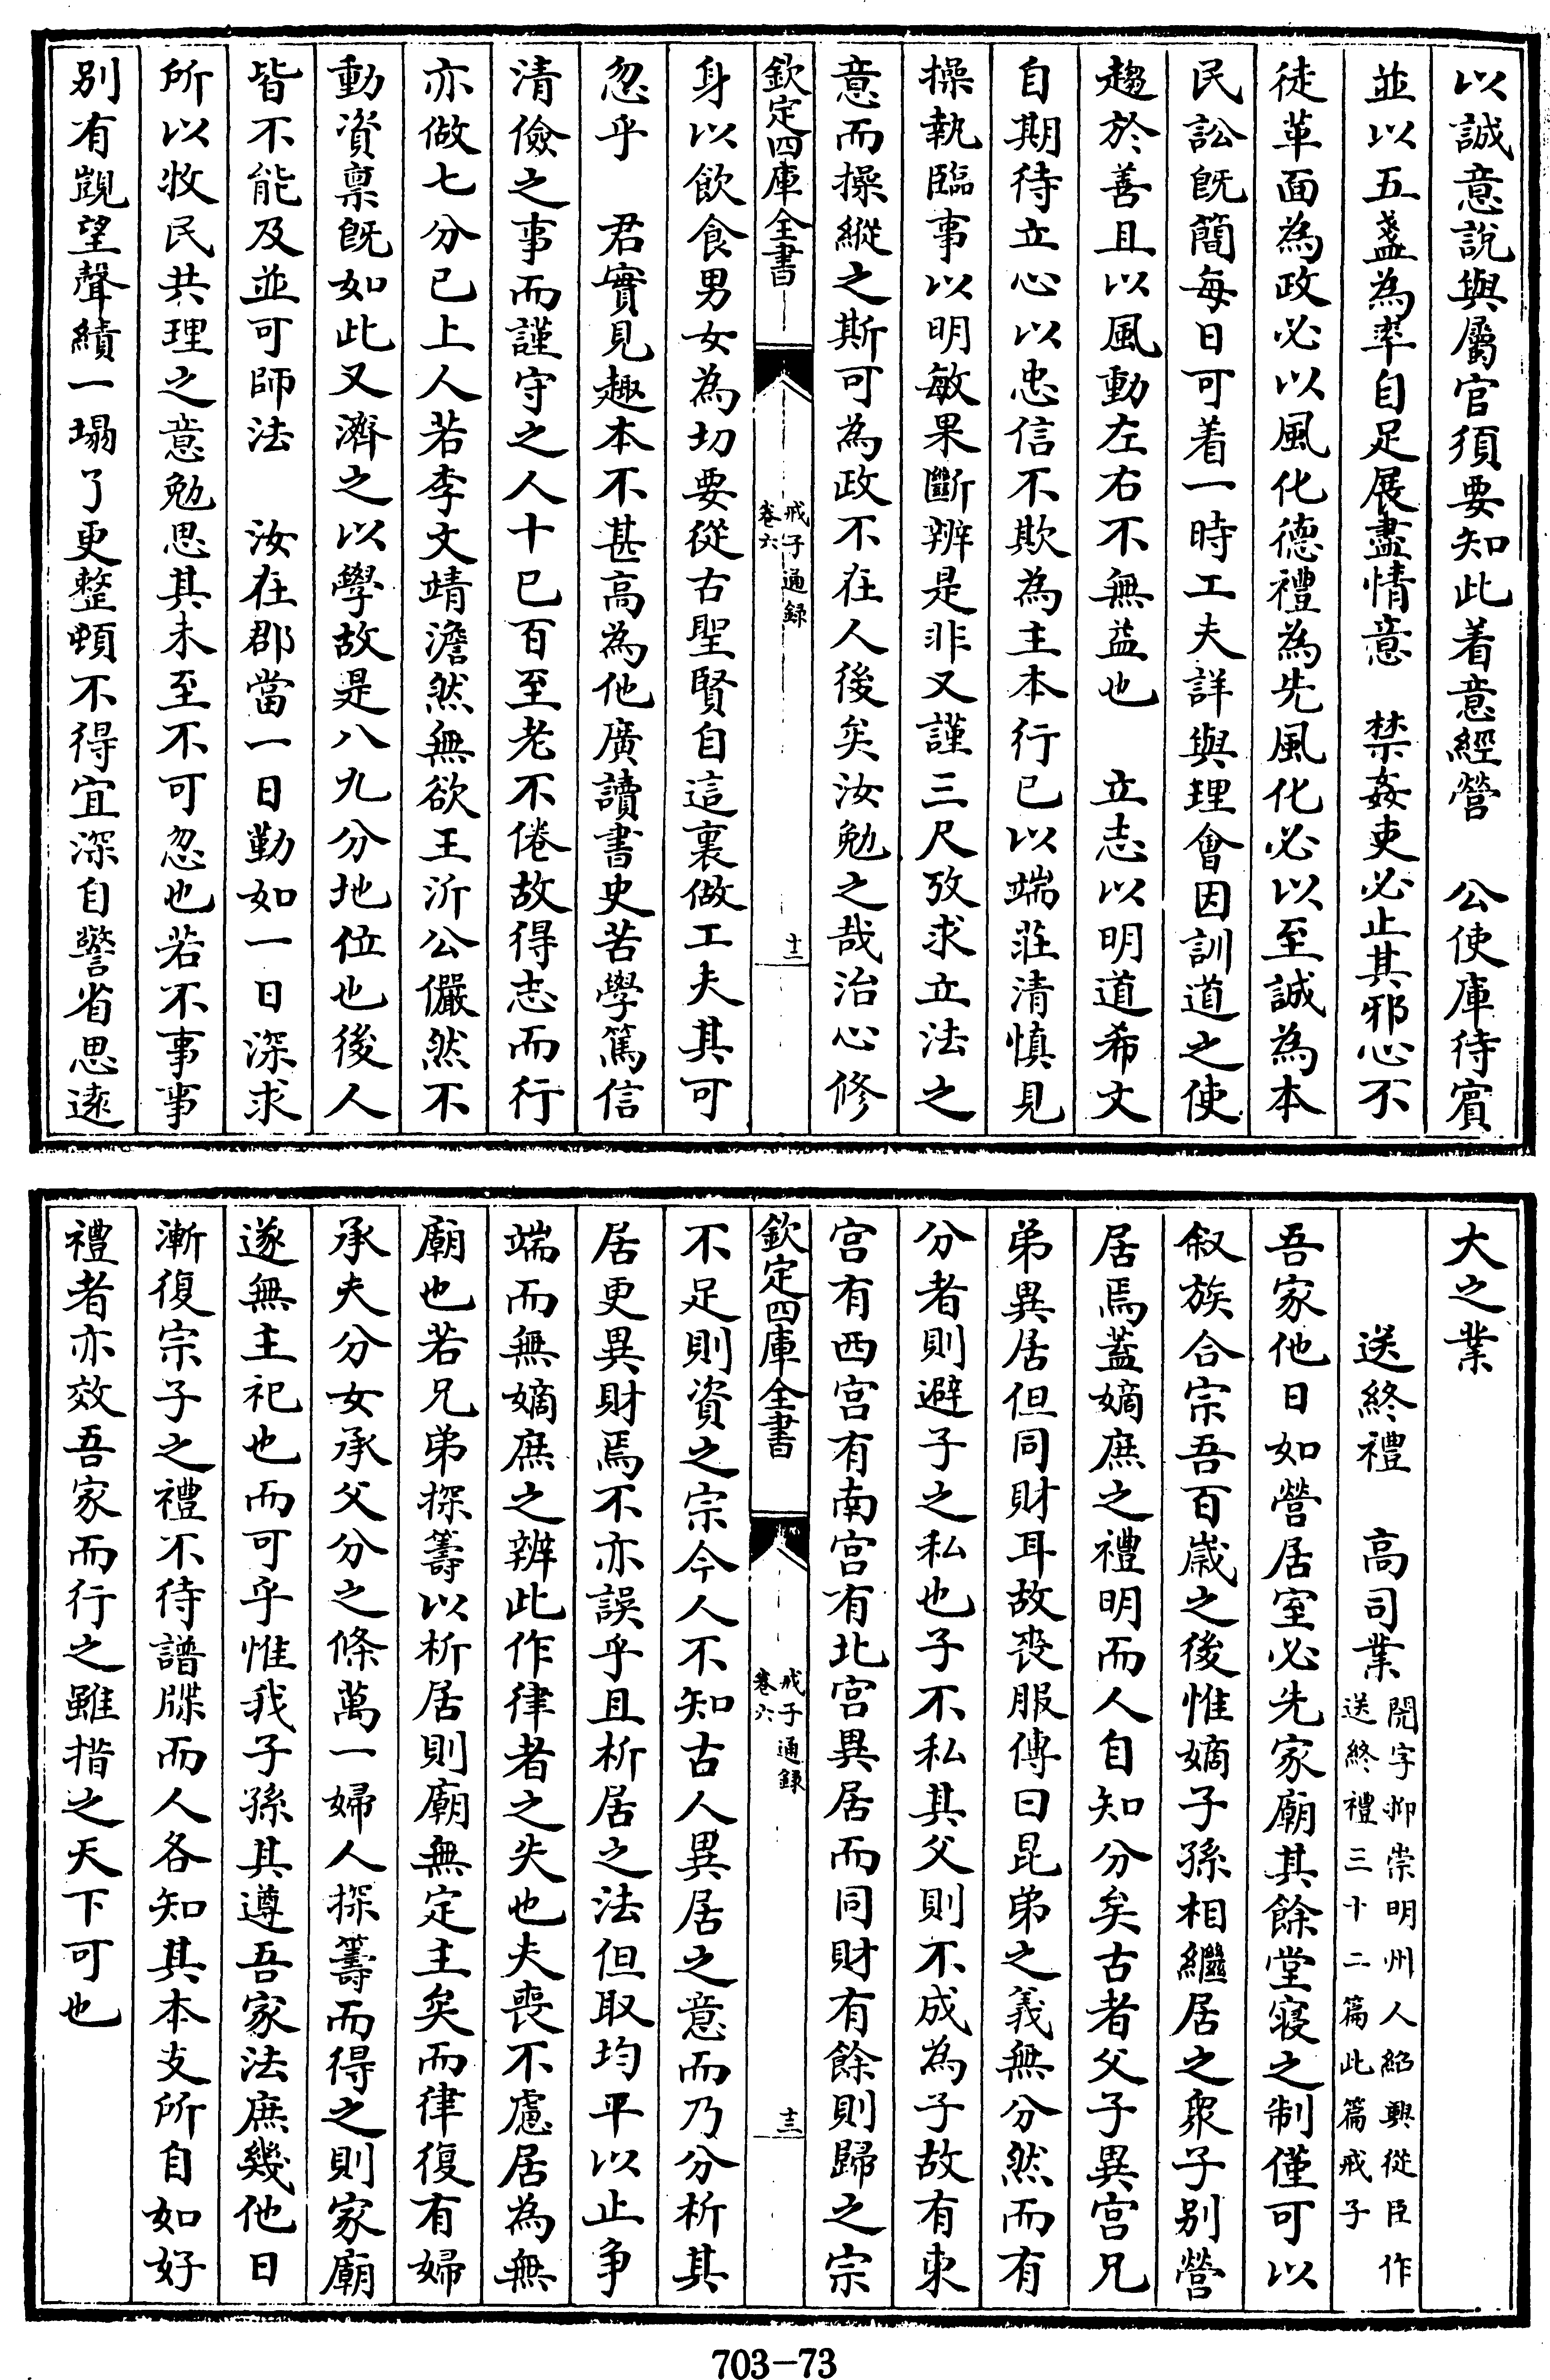 以誠意說與屬官須要知此着意經營　公使庫待賓
並以五盞為率自足展盡情意　禁姦吏必止其邪心不
徒革面為政必以風化德禮為先風化必以至誠為本
民訟旣簡每日可着一時工夫詳與理會因訓道之使
趨於善且以風動左右不無益也　立志以明道希文
自期待立心以忠信不欺為主本行已以端莊清慎見
操執臨事以明敏果斷辨是非又謹三尺攷求立法之
意而操縱之斯可為政不在人後矣汝勉之哉治心修
欽定四庫全書
戒子通録
卷六
十二
身以飲食男女為切要從古聖賢自這裏做工夫其可
忽乎　君實見趣本不甚高為他廣讀書史苦學篤信
清儉之事而謹守之人十已百至老不倦故得志而行
亦做七分已上人若李文靖澹然無欲王沂公儼然不
動資稟旣如此又濟之以學故是八九分地位也後人
皆不能及並可師法　汝在郡當一日勤如一日深求
所以牧民共理之意勉思其未至不可忽也若不事事
別有覬望聲績一塌了更整頓不得宜深自警省思遠
大之業
送終禮　高司業
閌字抑崇明州人紹興從臣作
送終禮三十二篇此篇戒子
吾家他日如營居室必先家廟其餘堂寢之制僅可以
叙族合宗吾百歲之後惟嫡子孫相繼居之衆子别營
居焉蓋嫡庶之禮明而人自知分矣古者父子異宮兄
弟異居但同財耳故喪服傳曰昆弟之義無分然而有
分者則避子之私也子不私其父則不成為子故有東
宮有西宮有南宮有北宮異居而同財有餘則歸之宗
欽定四庫全書
戒子通録
卷六
十三
不足則資之宗今人不知古人異居之意而乃分析其
居更異財焉不亦誤乎且析居之法但取均平以止爭
端而無嫡庶之辨此作律者之失也夫喪不慮居為無
廟也若兄弟探籌以析居則廟無定主矣而律復有婦
承夫分女承父分之條萬一婦人探籌而得之則家廟
遂無主祀也而可乎惟我子孫其遵吾家法庶幾他日
漸復宗子之禮不待譜牒而人各知其本支所自如好
禮者亦效吾家而行之雖措之天下可也
703-73